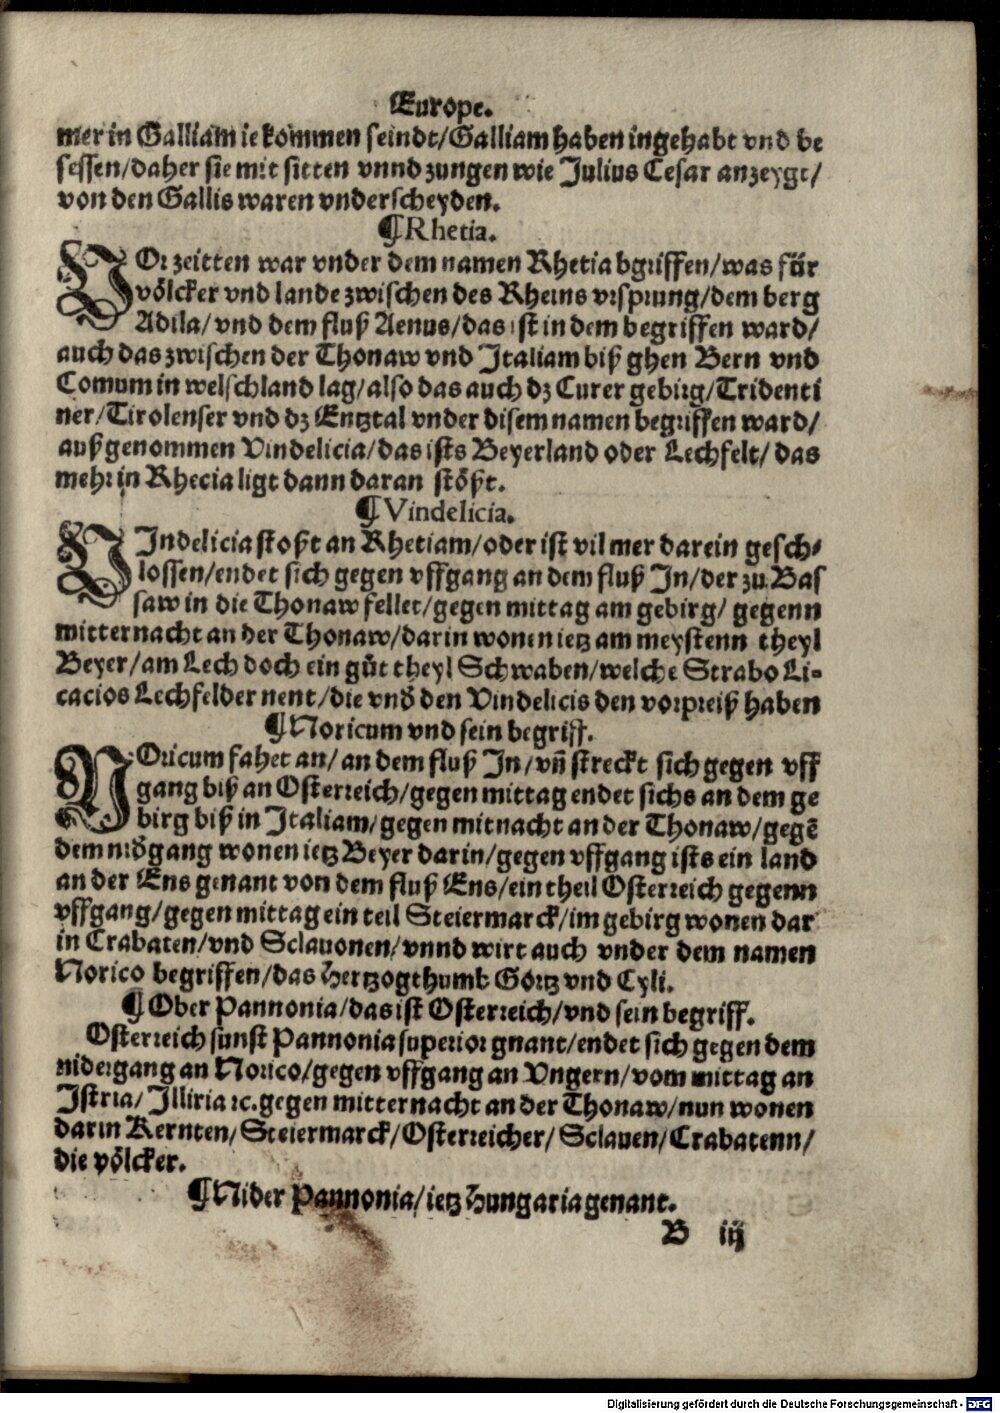 Europe.
mer in Galliam ie kommen seindt/Galliam haben ingehabt vnd be
sessen/daher sie mit sitten vnnd zungen wie Julius Cesar anzeygt/
von den Gallis waren vnderscheyden.
¶Rhetia.
VOr zeitten war vnder dem namen Rhetia bgriffen/was für
völcker vnd lande zwischen des Rheins vrsprung/dem berg
Adila/vnd dem fluß Aenus/das ist in dem begriffen ward/
auch das zwischen der Thonaw vnd Italiam biß ghen Bern vnd
Comum in welschland lag/also das auch dz Curer gebirg/Tridenti
ner/Tirolenser vnd dz Entztal vnder disem namen begriffen ward/
außgenommen Vindelicia/das ists Beyerland oder Lechfelt/das
mehr in Rhecia ligt dann daran stößt.
¶Vindelicia.
VIndelicia stoßt an Rhetiam/oder ist vil mer darein gesch⸗
lossen/endet sich gegen vffgang an dem fluß In/der zu Bas
saw in die Thonaw fellet/gegen mittag am gebirg/ gegenn
mitternacht an der Thonaw/darin wonen ietz am meystenn theyl
Beyer/am Lech doch ein gůt theyl Schwaben/welche Strabo Li⸗
cacios Lechfelder nent/die vnď den Vindelicis den vorpreiß haben
¶Noricum vnd sein begriff.
NOricum fahet an/an dem fluß In/vn̄ streckt sich gegen vff
gang biß an Osterreich/gegen mittag endet sichs an dem ge
birg biß in Italiam/gegen mitnacht an der Thonaw/gegē
dem niďgang wonen ietz Beyer darin/gegen vffgang ists ein land
an der Ens genant von dem fluß Ens/ein theil Osterreich gegenn
vffgang/gegen mittag ein teil Steiermarck/im gebirg wonen dar
in Crabaten/vnd Sclauonen/vnnd wirt auch vnder dem namen
Norico begriffen/das Hertzogthumb Görtz vnd Cyli.
¶Ober Pannonia/das ist Osterreich/vnd sein begriff.
Osterreich sunst Pannonia superior gnant/endet sich gegen dem
nidergang an Norico/gegen vffgang an Vngern/vom mittag an
Istria/Illiria ꝛc. gegen mitternacht an der Thonaw/nun wonen
darin Kernten/Steiermarck/Osterreicher/Sclauen/Crabatenn/
die völcker.
¶Nider Pannonia/ietz Hungaria genant.
B iij
Digitalisierung gefördert durch die Deutsche Forschungsgemeinschaft - DFG